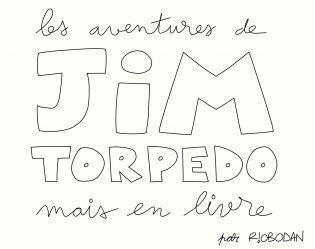 les aventures de
JiM
TORPEDO
mais en livre
par RJOBODAN